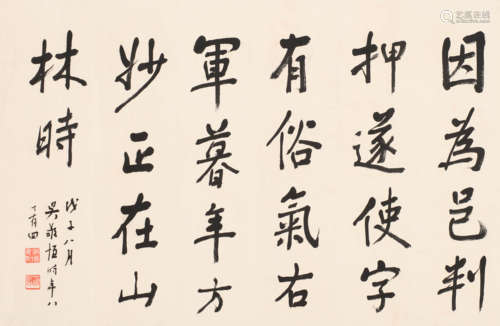 因為邑判
押遂使字
有俗氣右
軍暮年方
妙正在山
林時
戊子八月
吳敬恒時年八
十有四